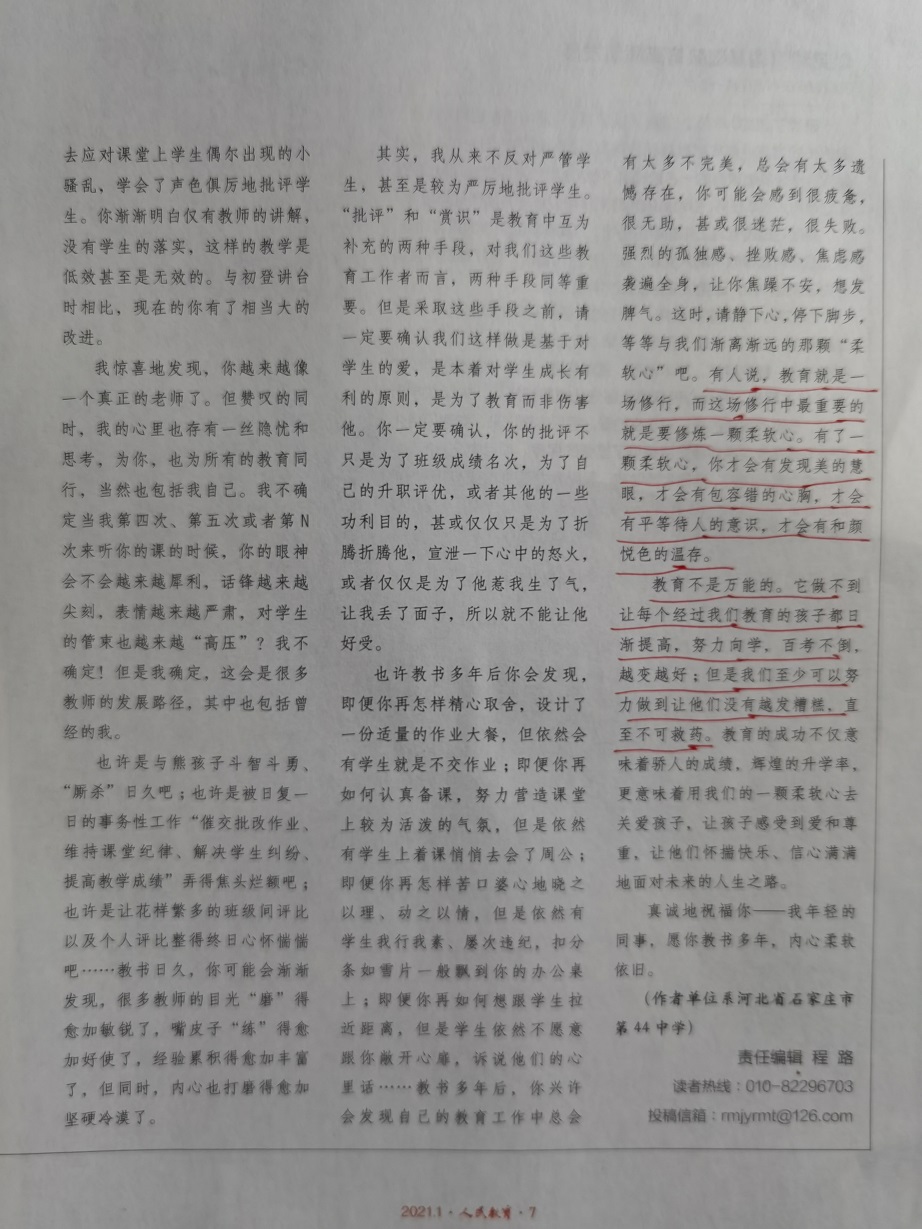 去应对课堂上学生偶尔出现的小
骚乱、学会了声色俱厉地批评学
生。你渐渐明白仅有教师的讲解，
没有学生的落实，这样的教学是
低效甚至是无效的。与初登讲台
时相比，现在的你有了相当大的
改进。
我惊喜地发现，你越来越像
一个真正的老师了。但赞叹的同
时，我的心里也存有一丝隐忧和
思考，为你，也为所有的教育同
行，当然也包括我自己。我不确
定当我第四次、第五次或者第N
次来听你的课的时候，你的眼神
会不会越来越犀利，话锋越来越
尖刻，表情越来越严肃，对学生
的管束也越来越“高压”？我不
确定！但是我确定，这会是很多
教师的发展路径，其中也包括曾
经的我。
也许是与熊孩子斗智斗勇、
“厮杀”日久吧；也许是被日复一
日的事务性工作“催交批改作业、
维持课堂纪律、解决学生纠纷、
提高教学成绩”弄得焦头烂额吧；
也许是让花样繁多的班级间评比
以及个人评比整得终日心怀惴惴
吧……教书日久，你可能会渐渐
发现，很多教师的目光“磨”得
愈加敏锐了，嘴皮子“练”得愈
加好使了，经验累积得愈加丰富
了，但同时，内心也打磨得愈加
坚硬冷漠了。
其实，我从来不反对严管学
生，甚至是较为严厉地批评学生。
“批评”和“赏识”是教育中互为
补充的两种手段，对我们这些教
育工作者而言，两种手段同等重
要。但是采取这些手段之前，请
一定要确认我们这样做是基于对
学生的爱，是本着对学生成长有
利的原则，是为了教育而非伤害
他。你一定要确认，你的批评不
只是为了班级成绩名次，为了自
己的升职评优，或者其他的一些
功利目的，甚或仅仅只是为了折
腾折腾他，宣泄一下心中的怒火，
或者仅仅是为了他惹我生了气，
让我丢了面子，所以就不能让他
好受。
也许教书多年后你会发现，
即便你再怎样精心取舍，设计了
一份适量的作业大餐，但依然会
有学生就是不交作业；即便你再
如何认真备课，努力营造课堂
上较为活泼的气氛，但是依然
有学生上着课悄悄去会了周公；
即便你再怎样苦口婆心地晓之
以理、动之以情，但是依然有
学生我行我素、屡次违纪，扣分
条如雪片一般飘到你的办公桌
上；即便你再如何想跟学生拉
近距离，但是学生依然不愿意
跟你敞开心扉，诉说他们的心
里话……教书多年后，你兴许
会发现自己的教育工作中总会
有太多不完美，总会有太多遗
憾存在，你可能会感到很疲惫，
很无助，甚或很迷茫，很失败。
强烈的孤独感、挫败感、焦虑感
袭遍全身，让你焦躁不安，想发
脾气。这时，请静下心，停下脚步，
等等与我们渐离渐远的那颗“柔
软心”吧。有人说，教育就是一
场修行，而这场修行中最重要的
就是要修炼一颗柔软心。有了一
颗柔软心，你才会有发现美的慧
眼，才会有包容错的心胸，才会
有平等待人的意识，才会有和颜
悦色的温存。
教育不是万能的。它做不到
让每个经过我们教育的孩子都日
渐提高，努力向学，百考不倒，
越变越好；但是我们至少可以努
力做到让他们没有越发糟糕，直
至不可救药。教育的成功不仅意
味着骄人的成绩，辉煌的升学率，
更意味着用我们的一颗柔软心去
关爱孩子，让孩子感受到爱和尊
重，让他们怀揣快乐、信心满满
地面对未来的人生之路。
真诚地祝福你——我年轻的
同事，愿你教书多年，内心柔软
依旧。
（作者单位系河北省石家庄市
第44中学）
责任编辑 程 路
读者热线：010-82296703
投稿信箱：rmjyrmt@126.com
2021.1·人民教育·7